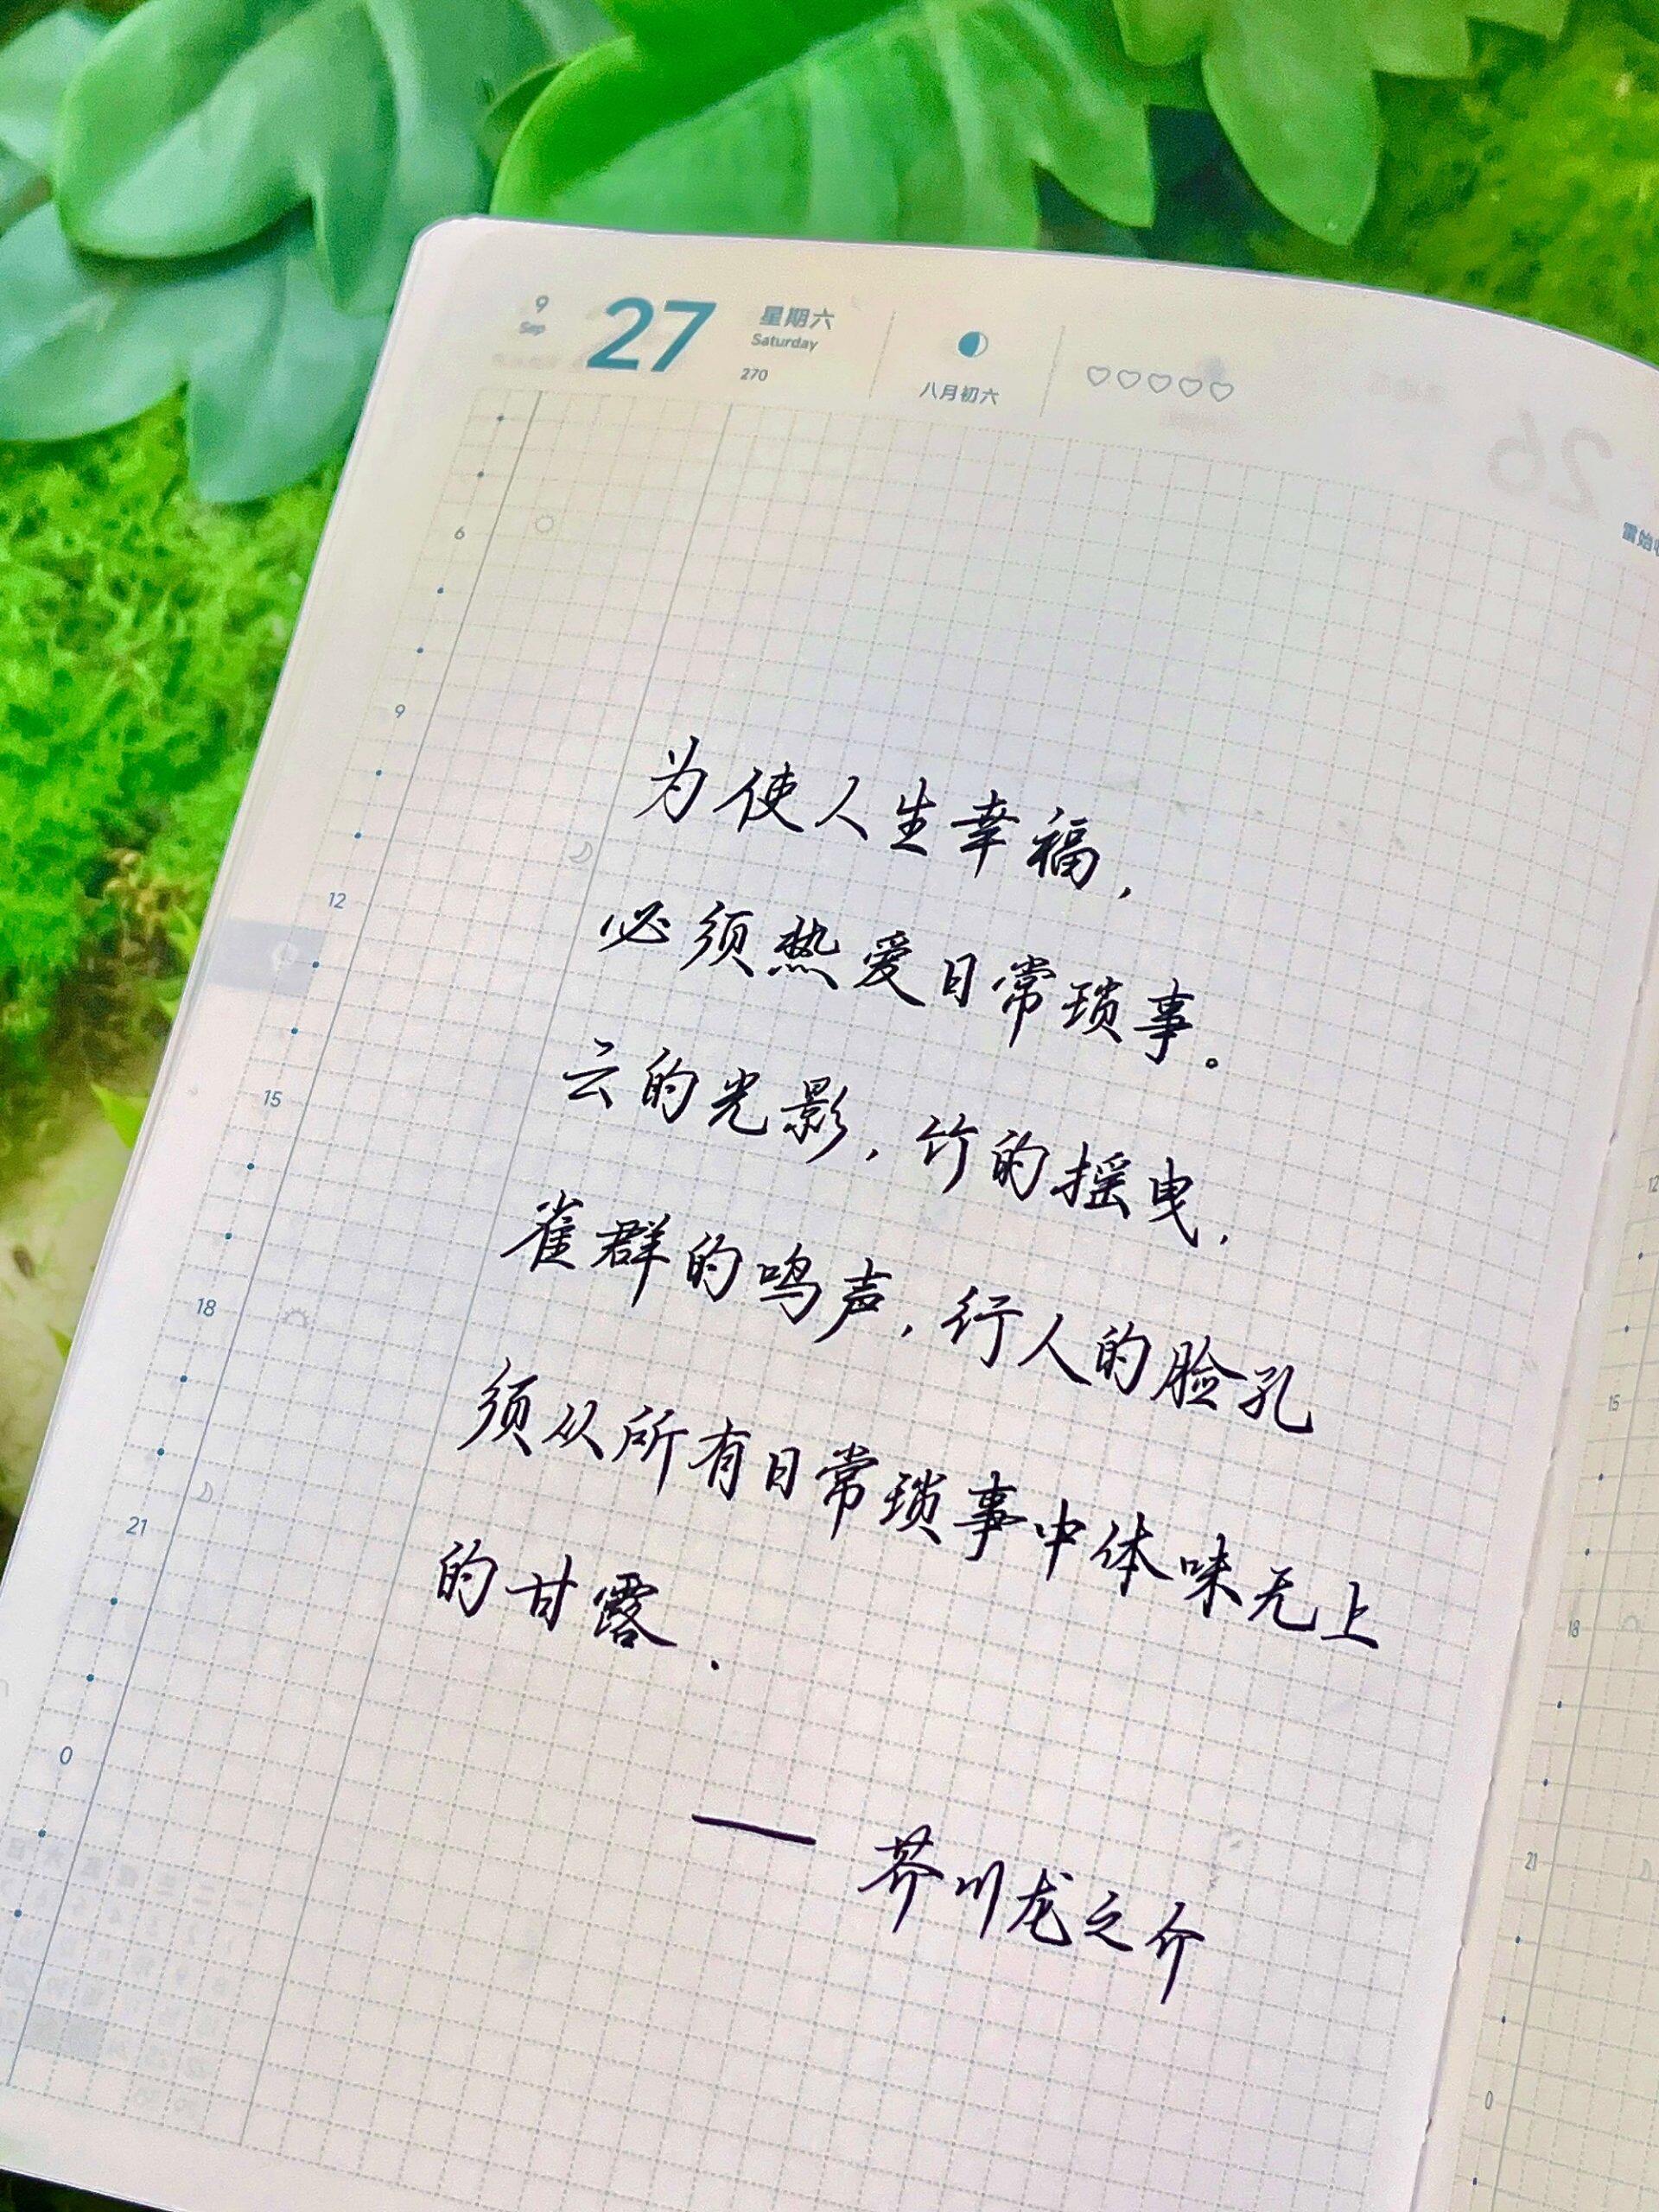 9
Sep
27
星期六
Saturday
270
八月初六
26
雷始
6
9
12
15
18
21
0
为使人生幸福，
必须热爱日常琐事。
云的光影，竹的摇曳，
雀群的鸣声，行人的脸孔
须从所有日常琐事中体味无上
的甘露．
—— 芥川龙之介
12
15
18
21
0